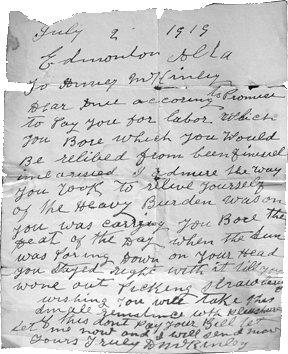 July 2 1919
Edmonton Alta
To Annie McKinley
Dear Ance accoring to Promise
to Pay you for labor. Which
you Bore which you Would
Be relibed from
I admire the way
you Took to relive yourself
of the Heavy Burden was on
you was carring you Bore the
Heat of the Day when the Sun
was Poring Down on Your Head
you Stayed right with it till you
wone out Picking Straw
wishing you will take this
Small with Pleasure
if this dont Pay your Bill
Let me now and I will Send more
Yours Truly D McKinley